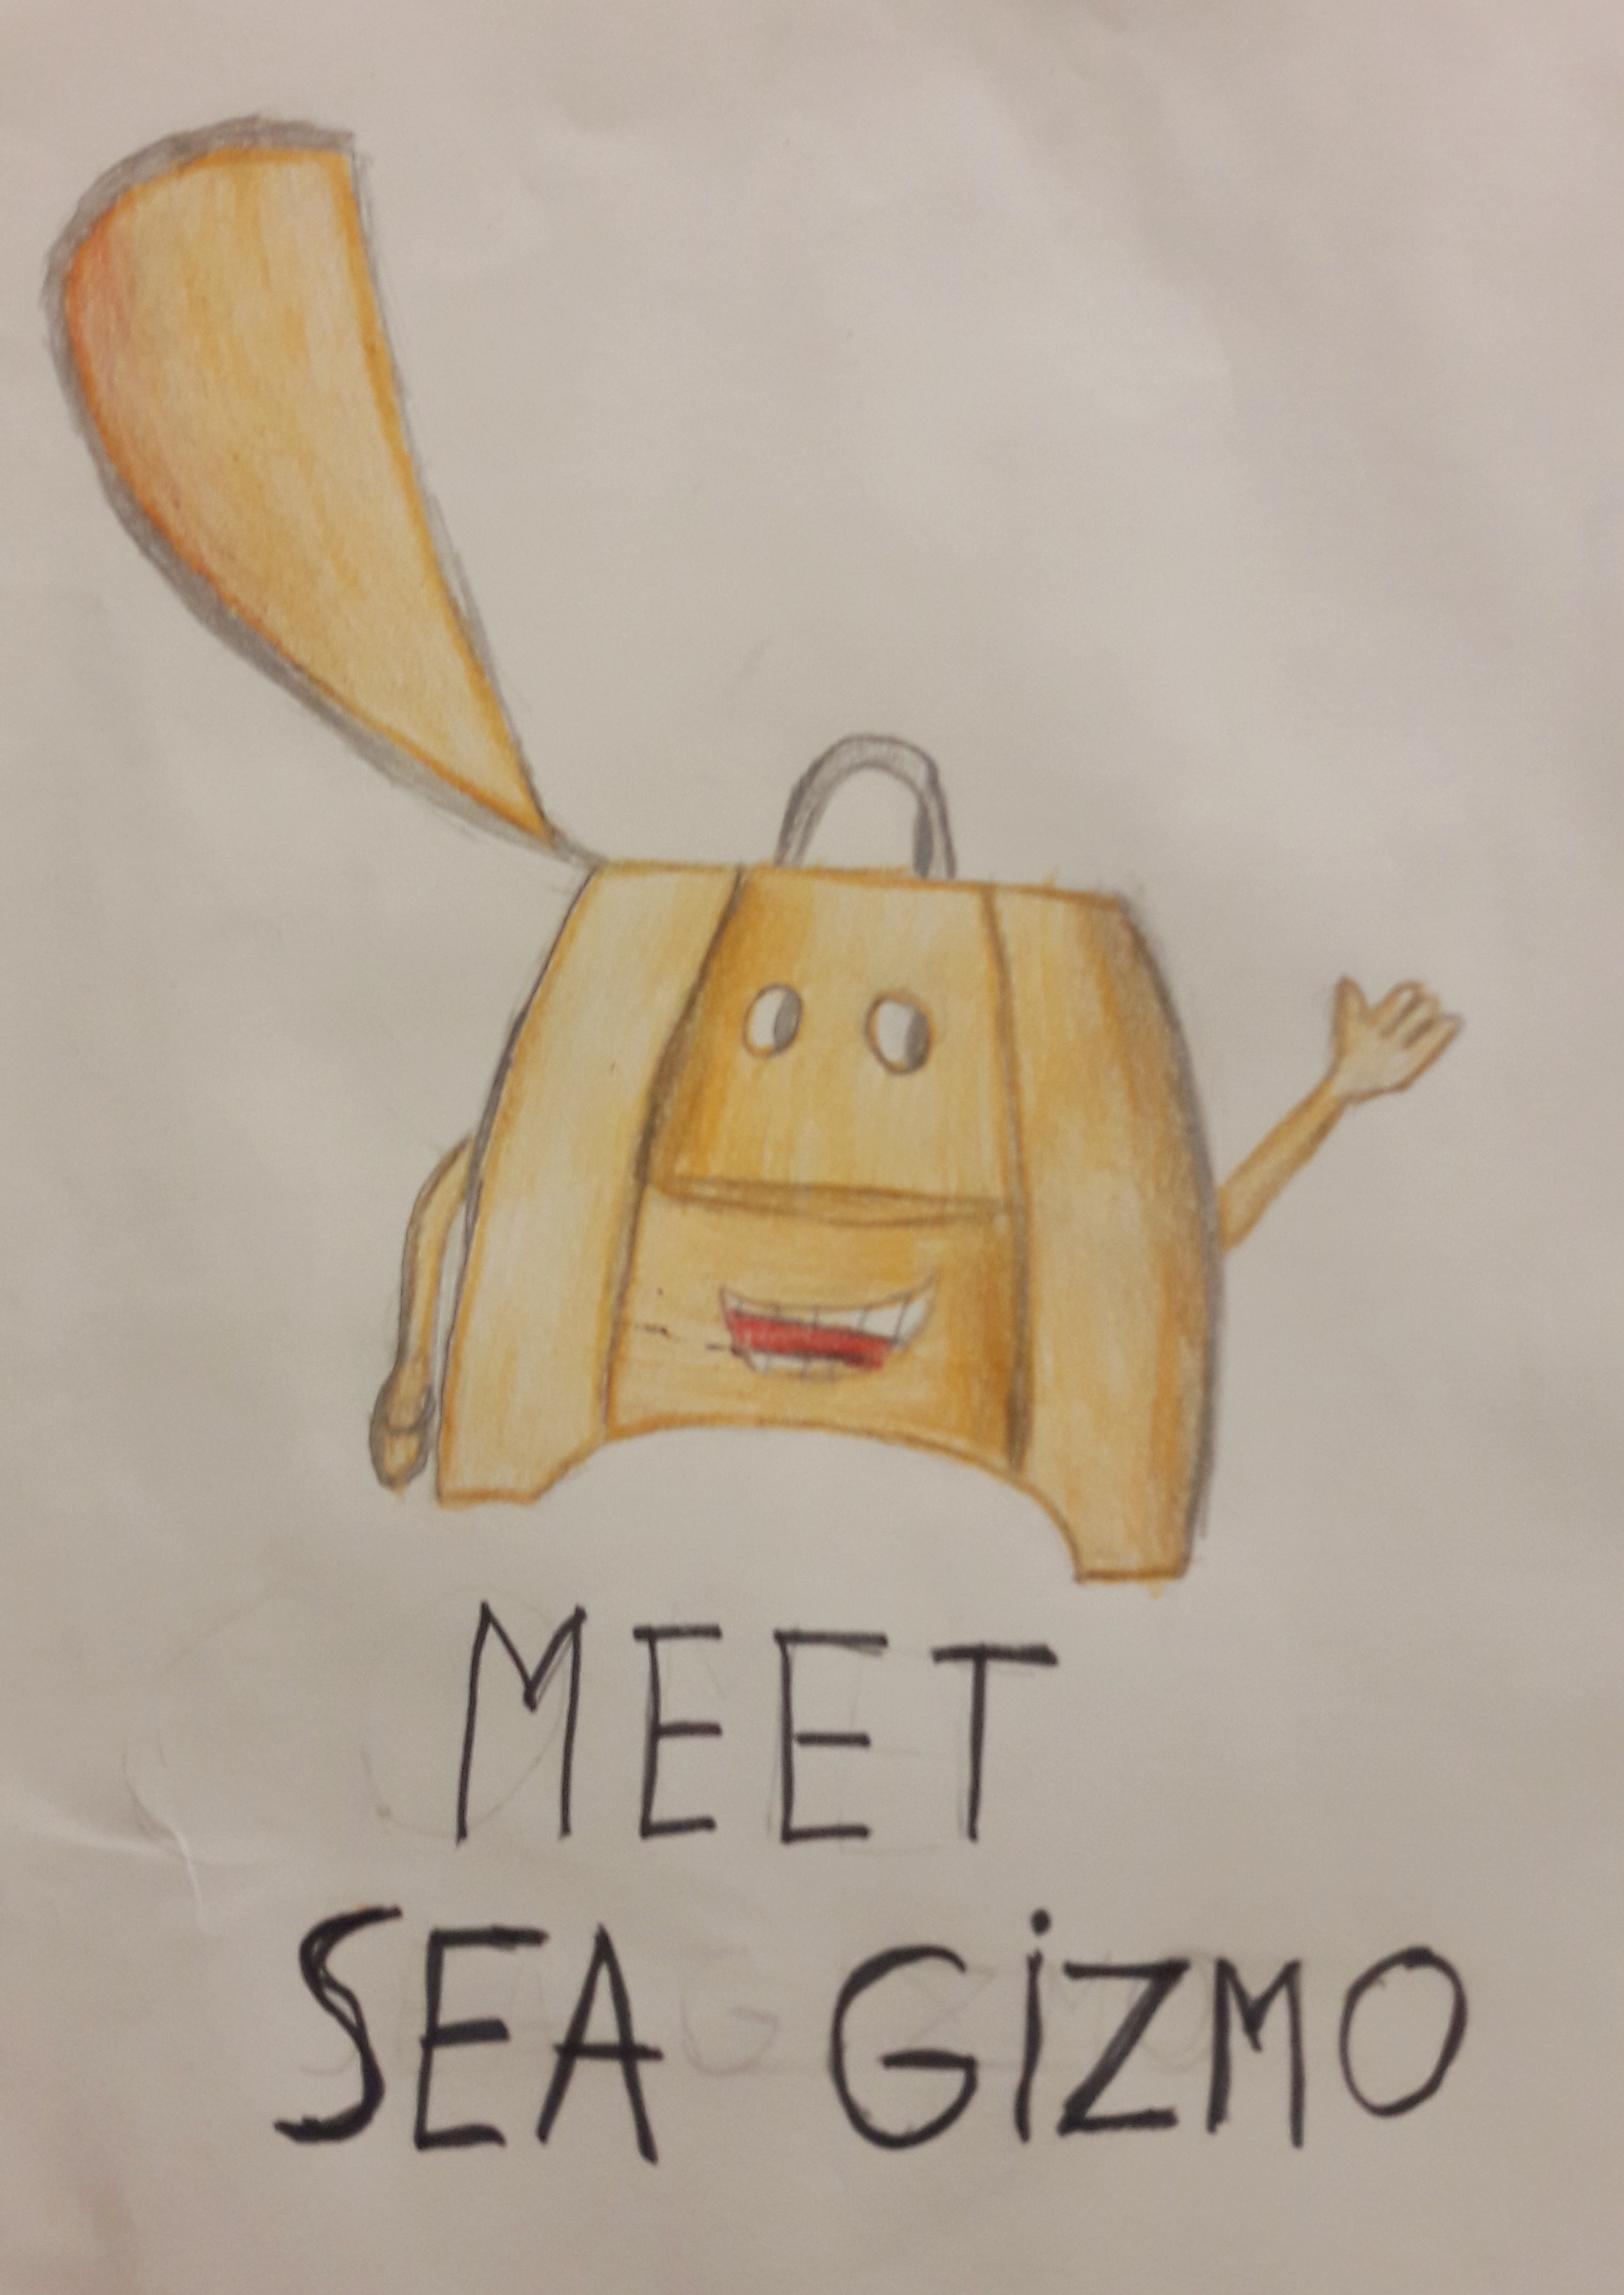 MEET
SEA GiZMO